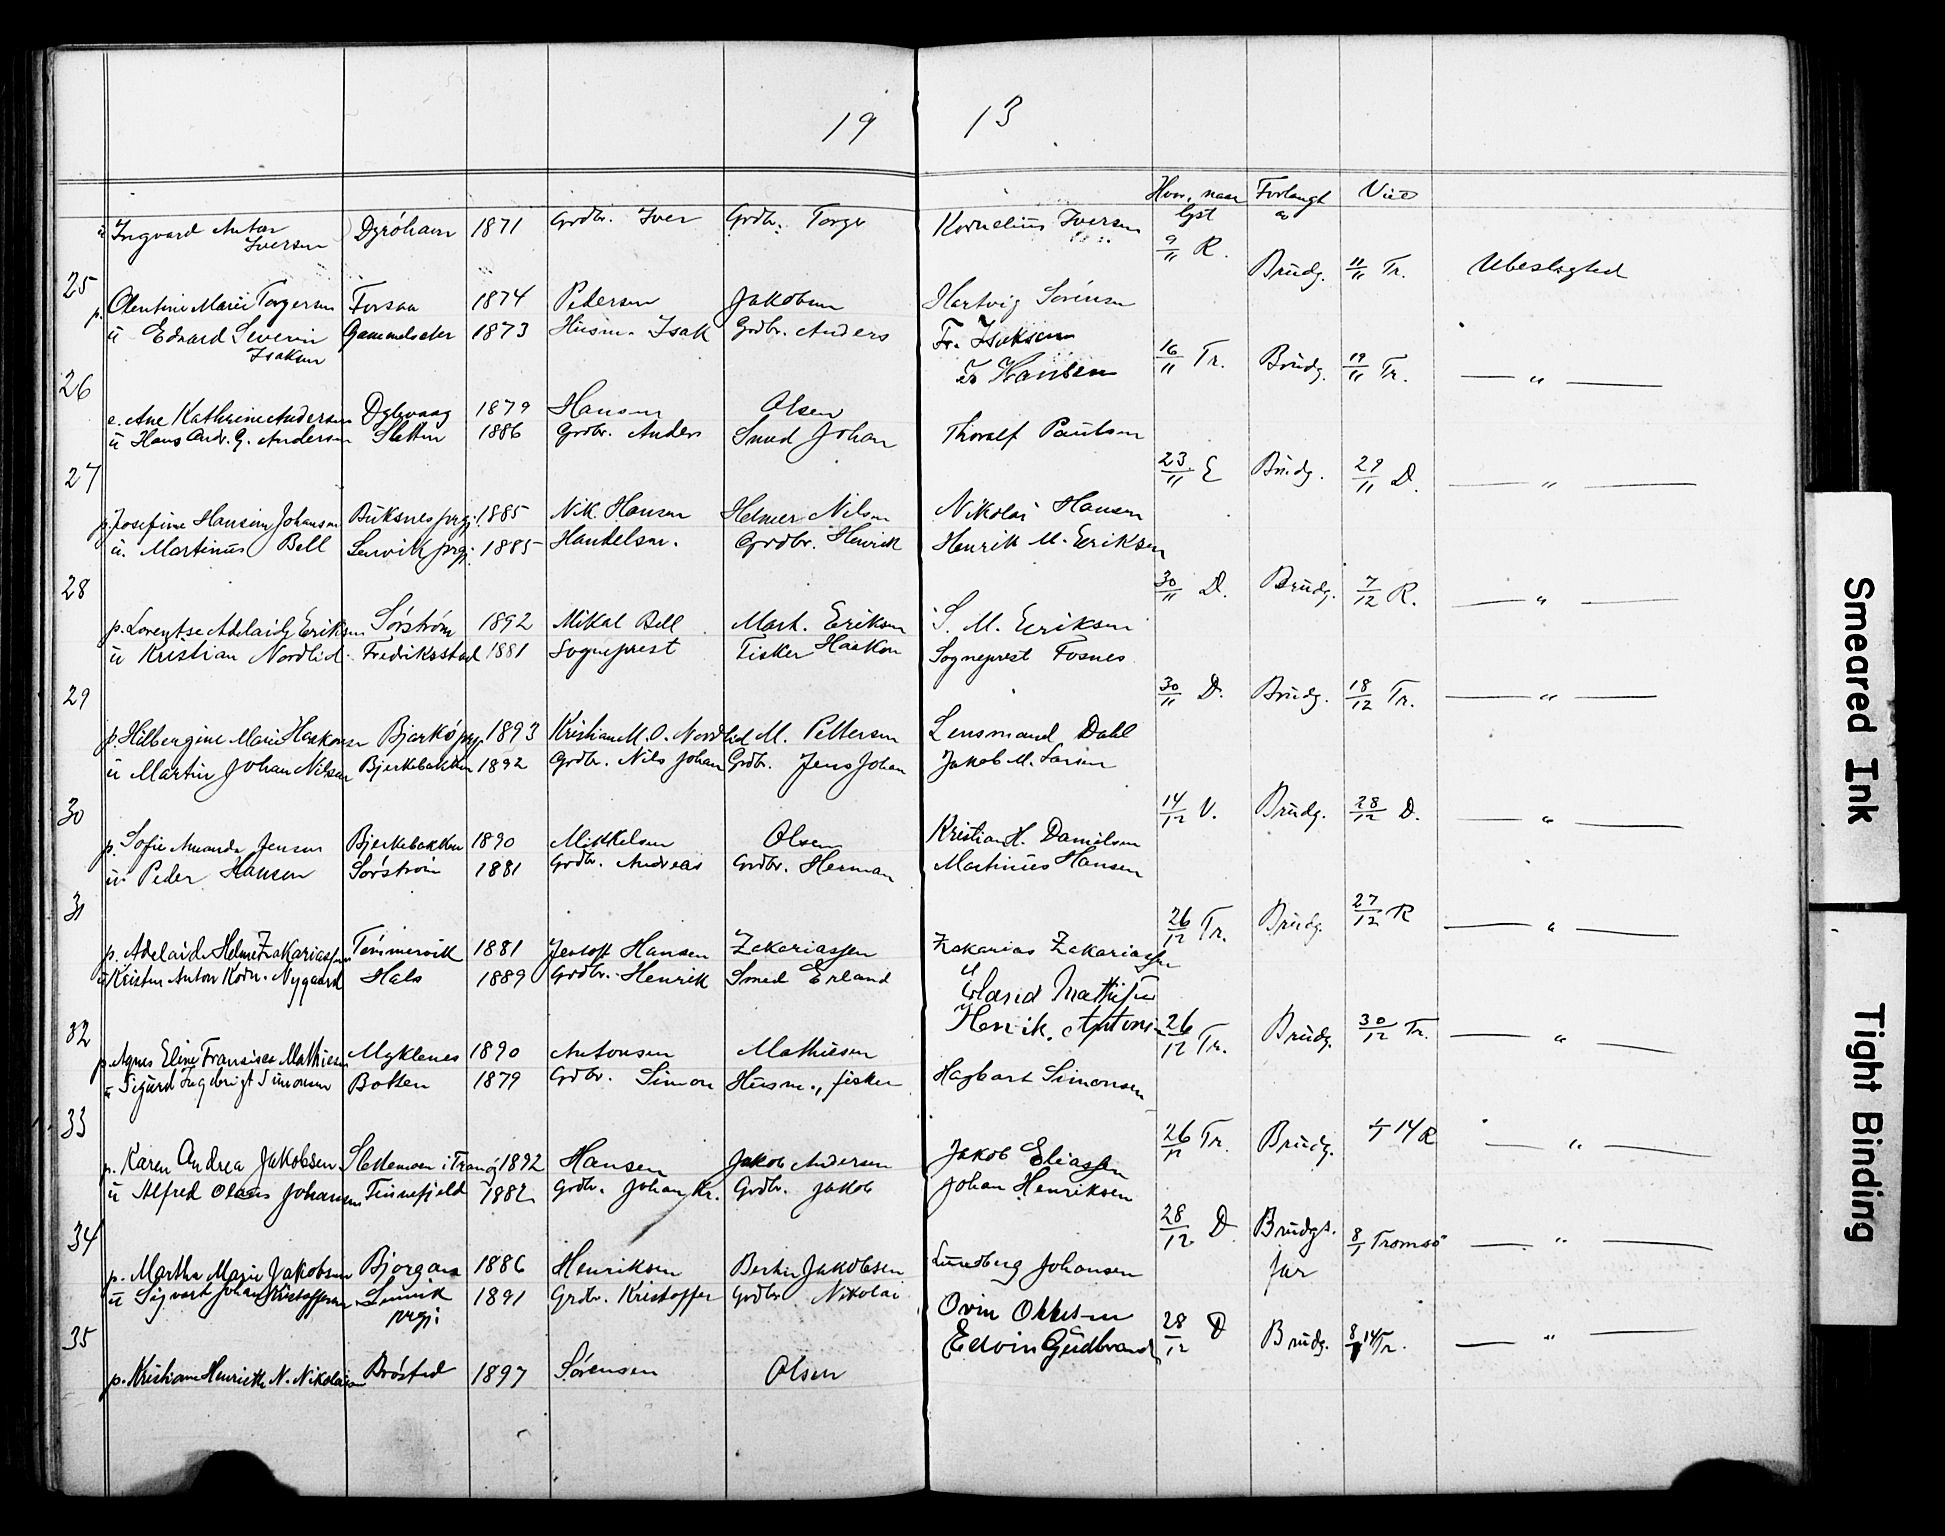 19 13
Hvor, naar lyst Forlangt av Viet
ü Ingvard Anton Iversen Dyröhavn 1871 Grdbr. Iver Grdbr. Torger Kornelius Iversen
25 9/11 R. Brudg. 11/11 Tr. Ubeslægted
p. Olentine Marie Torgersen Forsaa 1874 Pedersen Jakobsen Hartvig Sörensen
ü Edvard Severin Isaksen Gammelseter 1873 Husm. Isak Grdbr. Anders Fr. Isaksen
26 Hansen 16/11 Tr. Brudg. 19/11 Tr. — „ —
e. Ane Kathrine Andersen 1879 Hansen Olsen
ü Hans Andr. G. Andersen Sletten 1886 Grdbr. Anders Smed Johan Thoralf Paulsen
27 23/11 E Brudg. 29/11 D. — „ —
p. Josefine Hansine Johansen Buksnes prgj. 1885 Nik. Hansen Helmer Nilsen Nikolai Hansen
ü. Martinus Bell Lenvik prgj. 1885 Handelsm. Grdbr. Henrik Henrik M. Eriksen
28 30/11 D. Brudg. 7/12 R. — „ —
p. Lorentse Adelaide Eriksen Sörström 1892 Mikal Bell Mart. Eriksen S. M. Eriksen
ü Kristian Nordlid Fredriksstad 1881 Sogneprest Fisker Haakon Sogneprest Fosnes
29 30/11 D. Brudg. 18/12 Tr. — „ —
p. Hilbergine Marie Haakonsen Bjarkö prgj. 1893 Kristian M. O. Nordlid M. Pettersen Lensmand Dahl
ü Martin Johan Nilsen Bjerkebakken 1892 Grdbr. Nils Johan Grdbr. Jens Johan Jakob M. Larsen
30 14/12 V. Brudg. 28/12 D. — „ —
p. Sofie Amanda Jensen Bjerkebakken 1890 Mikkelsen Olsen Kristian H. Danielsen
ü. Peder Hansen Sörström 1881 Grdbr. Andreas Grdbr. Herman Martinus Hansen
31 26/12 Tr. Brudg. 27/12 R — „ —
p. Adelaide Helme Zakariassen Tömmervik 1881 Jentoft Hansen Zakariassen Zakarias Zakariassen
ü Kristen Anton Korn. Nygaard Hals 1889 Grdbr. Henrik Smed Erland
32 Henrik Antons 26/12 Tr. Brudg. 30/12 Tr. — „ —
p. Agnes Eline Fransisca Mathiesen Myklenes 1890 Antonsen Mathiesen
ü Sigurd Ingebrigt Simonsen Botten 1879 Grdbr. Simon Husm., fisker Hagbart Simonsen
33 26/12 Tr. Brudg. 4/1 14 R — „ —
p. Karen Andrea Jakobsen Slettemoen i Tranö 1892 Hansen Jakob Andersen Jakob Eliassen
ü Alfred Olaus Johansen Finnefjeld 1882 Grdbr. Johan Kr. Grdbr. Jakob Johan Henriksen
34 28/12 D Brudgs. far 8/1 Tromsö — „ —
p. Martha Marie Jakobsen Bjorgaas 1886 Henriksen Bertin Jakobsen Lundberg Johansen
ü Sigvart Johan Kristoffersen Lenvik prgj. 1891 Grdbr. Kristoffer Grdbr Nikolai
35 Edvin Gudbrands 28/12 D Brudg. 8/1 14 Tr. — „ —
p. Kristiane Henriette N. Nikolaisen Bröstad 1897 Sörensen Olsen
Smeared Ink
Tight Binding